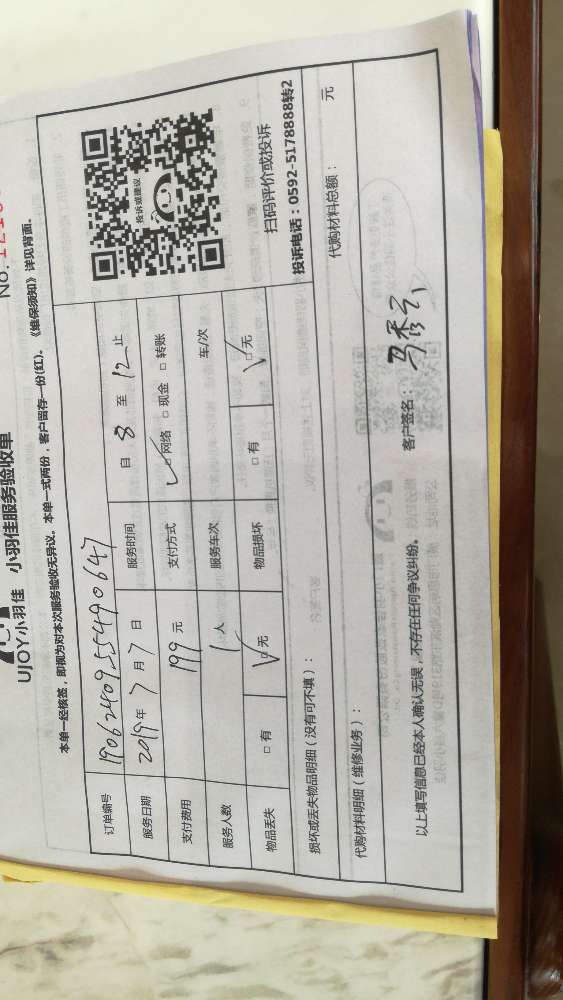 No.
UJOY小羽佳 小羽佳服务验收单
本单一经核签，即视为对本次服务验收无异议。本单一式两份，客户留存一份(红)。《维保须知》详见背面。
订单编号 1906240955490647
服务日期 2019年 7 月 7 日 服务时间 自 8 至 12 止
支付费用 199 元 支付方式 ☑网络 □现金 □转账
服务人数 1 人 服务车次 车/次
物品丢失 □有 ☑无 物品损坏 □有 ☑无
投诉或建议
扫码评价或投诉
投诉电话：0592-5178888转2
损坏或丢失物品明细（没有可不填）：
代购材料明细（维修业务）： 代购材料总额： 元
以上填写信息已经本人确认无误，不存在任何争议纠纷。 客户签名：马秀云